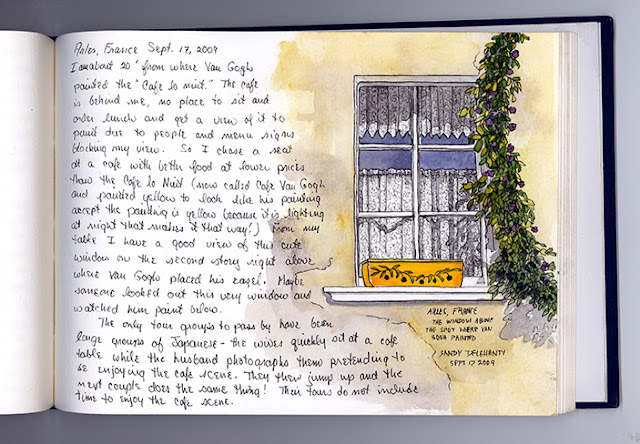 Arles, France Sept. 17, 2009
I am about 20' from where Van Gogh
painted the "Cafe la Nuit." The cafe
is behind me, no place to sit and
order lunch and get a view of it to
paint due to people and menu signs
blocking my view. So I chose a seat
at a cafe with better food at lower prices
than the Cafe la Nuit (now called Cafe Van Gogh
and painted yellow to look like his painting
accept the painting is yellow because it is lighting
at night that makes it that way!) From my
table I have a good view of this cute
window on the second story right above
where Van Gogh placed his easel. Maybe
someone looked out this very window and
watched him paint below.
The only tour groups to pass by have been
large groups of Japanese - the wives quickly sit at a cafe
table while the husband photographs them pretending to
be enjoying the cafe scene. They then jump up and the
next couple does the same thing! Their tours do not include
time to enjoy the cafe scene.
ARLES, FRANCE
THE WINDOW ABOVE
THE SPOT WHERE VAN
GOGH PAINTED
SANDY DELEHANTY
SEPT 17 2009